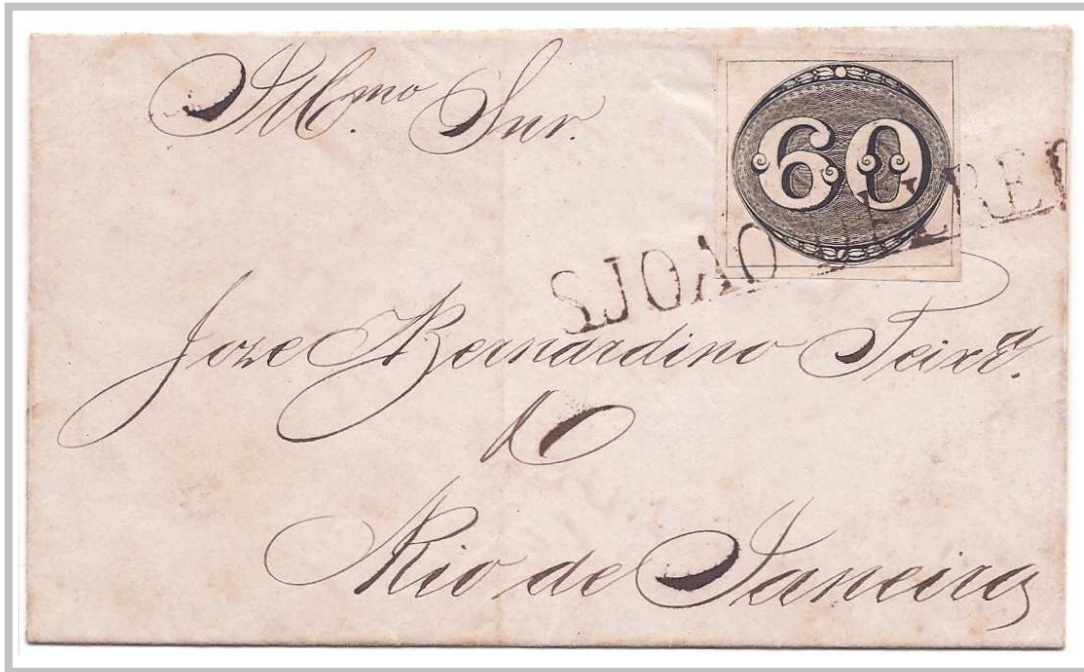 Illmo Snr.
60
S JOAO D'EL REI
Joze Bernardino Teixra.
Rio de Janeiro